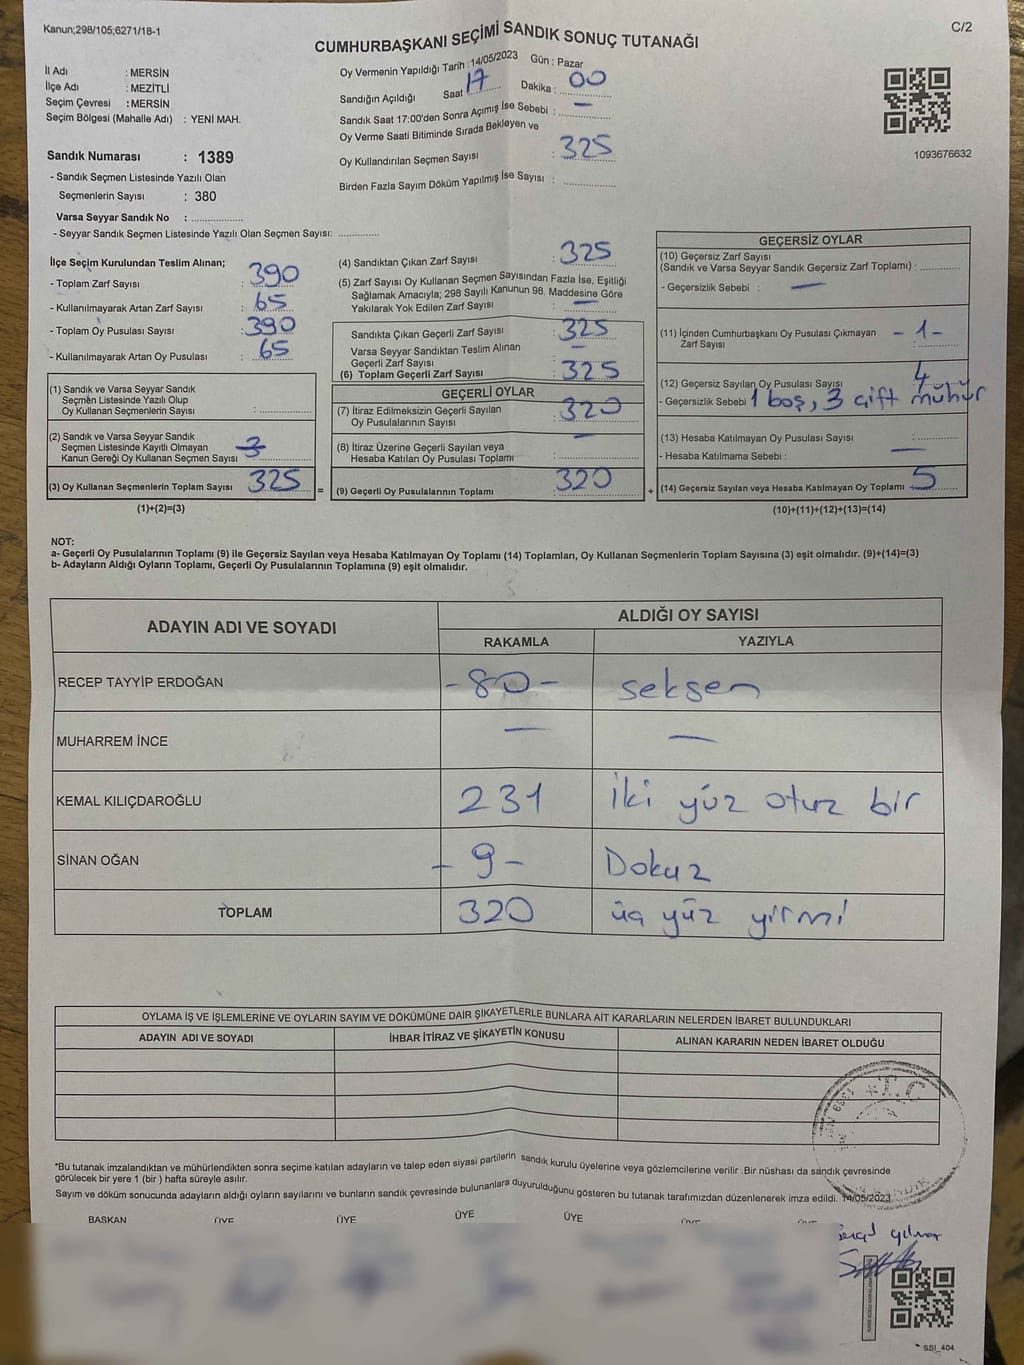 Kanun;298/105;6271/18-1
C/2
CUMHURBAŞKANI SEÇİMİ SANDIK SONUÇ TUTANAĞI
İl Adı : MERSİN
İlçe Adı : MEZİTLİ
Seçim Çevresi : MERSİN
Seçim Bölgesi (Mahalle Adı) : YENİ MAH.
Sandık Numarası : 1389
- Sandık Seçmen Listesinde Yazılı Olan
Seçmenlerin Sayısı : 380
Varsa Seyyar Sandık No : ..................
- Seyyar Sandık Seçmen Listesinde Yazılı Olan Seçmen Sayısı: ..............
Oy Vermenin Yapıldığı Tarih : 14/05/2023 Gün : Pazar
Sandığın Açıldığı Saat 17 Dakika : 00
Sandık Saat 17:00'den Sonra Açımış İse Sebebi : —
Oy Verme Saati Bitiminde Sırada Bekleyen ve
Oy Kullandırılan Seçmen Sayısı : 325
Birden Fazla Sayım Döküm Yapılmış İse Sayısı : ..............
1093676632
İlçe Seçim Kurulundan Teslim Alınan;
- Toplam Zarf Sayısı : 390
- Kullanılmayarak Artan Zarf Sayısı : 65
- Toplam Oy Pusulası Sayısı : 390
- Kullanılmayarak Artan Oy Pusulası : 65
(1) Sandık ve Varsa Seyyar Sandık
Seçmen Listesinde Yazılı Olup
Oy Kullanan Seçmenlerin Sayısı : ..............
(2) Sandık ve Varsa Seyyar Sandık
Seçmen Listesinde Kayıtlı Olmayan
Kanun Gereği Oy Kullanan Seçmen Sayısı : 3
(3) Oy Kullanan Seçmenlerin Toplam Sayısı 325 =
(1)+(2)=(3)
(4) Sandıktan Çıkan Zarf Sayısı : 325
(5) Zarf Sayısı Oy Kullanan Seçmen Sayısından Fazla İse, Eşitliği
Sağlamak Amacıyla; 298 Sayılı Kanunun 98. Maddesine Göre
Yakılarak Yok Edilen Zarf Sayısı : —
Sandıkta Çıkan Geçerli Zarf Sayısı : 325
Varsa Seyyar Sandıktan Teslim Alınan
Geçerli Zarf Sayısı : —
(6) Toplam Geçerli Zarf Sayısı : 325
GEÇERLİ OYLAR
(7) İtiraz Edilmeksizin Geçerli Sayılan
Oy Pusulasının Sayısı : 320
(8) İtiraz Üzerine Geçerli Sayılan veya
Hesaba Katılan Oy Pusulası Toplamı : —
(9) Geçerli Oy Pusulalarının Toplamı : 320 +
GEÇERSİZ OYLAR
(10) Geçersiz Zarf Sayısı
(Sandık ve Varsa Seyyar Sandık Geçersiz Zarf Toplamı) : ..............
- Geçersizlik Sebebi : —
(11) İçinden Cumhurbaşkanı Oy Pusulası Çıkmayan
Zarf Sayısı : - 1 -
(12) Geçersiz Sayılan Oy Pusulası Sayısı : 4
- Geçersizlik Sebebi 1 boş, 3 çift mühür
(13) Hesaba Katılmayan Oy Pusulası Sayısı : ..............
- Hesaba Katılmama Sebebi : —
(14) Geçersiz Sayılan veya Hesaba Katılmayan Oy Toplamı : 5
(10)+(11)+(12)+(13)=(14)
NOT:
a- Geçerli Oy Pusulalarının Toplamı (9) ile Geçersiz Sayılan veya Hesaba Katılmayan Oy Toplamı (14) Toplamları, Oy Kullanan Seçmenlerin Toplam Sayısına (3) eşit olmalıdır. (9)+(14)=(3)
b- Adayların Aldığı Oyların Toplamı, Geçerli Oy Pusulalarının Toplamına (9) eşit olmalıdır.
ADAYIN ADI VE SOYADI
ALDIĞI OY SAYISI
RAKAMLA YAZIYLA
RECEP TAYYİP ERDOĞAN - 80 - seksen
MUHARREM İNCE — —
KEMAL KILIÇDAROĞLU 231 İki yüz otuz bir
SİNAN OĞAN - 9 - Dokuz
TOPLAM 320 üç yüz yirmi
OYLAMA İŞ VE İŞLEMLERİNE VE OYLARIN SAYIM VE DÖKÜMÜNE DAİR ŞİKAYETLERLE BUNLARA AİT KARARLARIN NELERDEN İBARET BULUNDUKLARI
ADAYIN ADI VE SOYADI İHBAR İTİRAZ VE ŞİKAYETİN KONUSU ALINAN KARARIN NEDEN İBARET OLDUĞU
T.C
*Bu tutanak imzalandıktan ve mühürlendikten sonra seçime katılan adayların ve talep eden siyasi partilerin sandık kurulu üyelerine veya gözlemcilerine verilir .Bir nüshası da sandık çevresinde
görülecek bir yere 1 (bir ) hafta süreyle asılır.
Sayım ve döküm sonucunda adayların aldığı oyların sayılarını ve bunların sandık çevresinde bulunanlara duyurulduğunu gösteren bu tutanak tarafımızdan düzenlenerek imza edildi. 14/05/2023
BAŞKAN ÜYE ÜYE ÜYE ÜYE ÜYE ÜYE
SSI_404